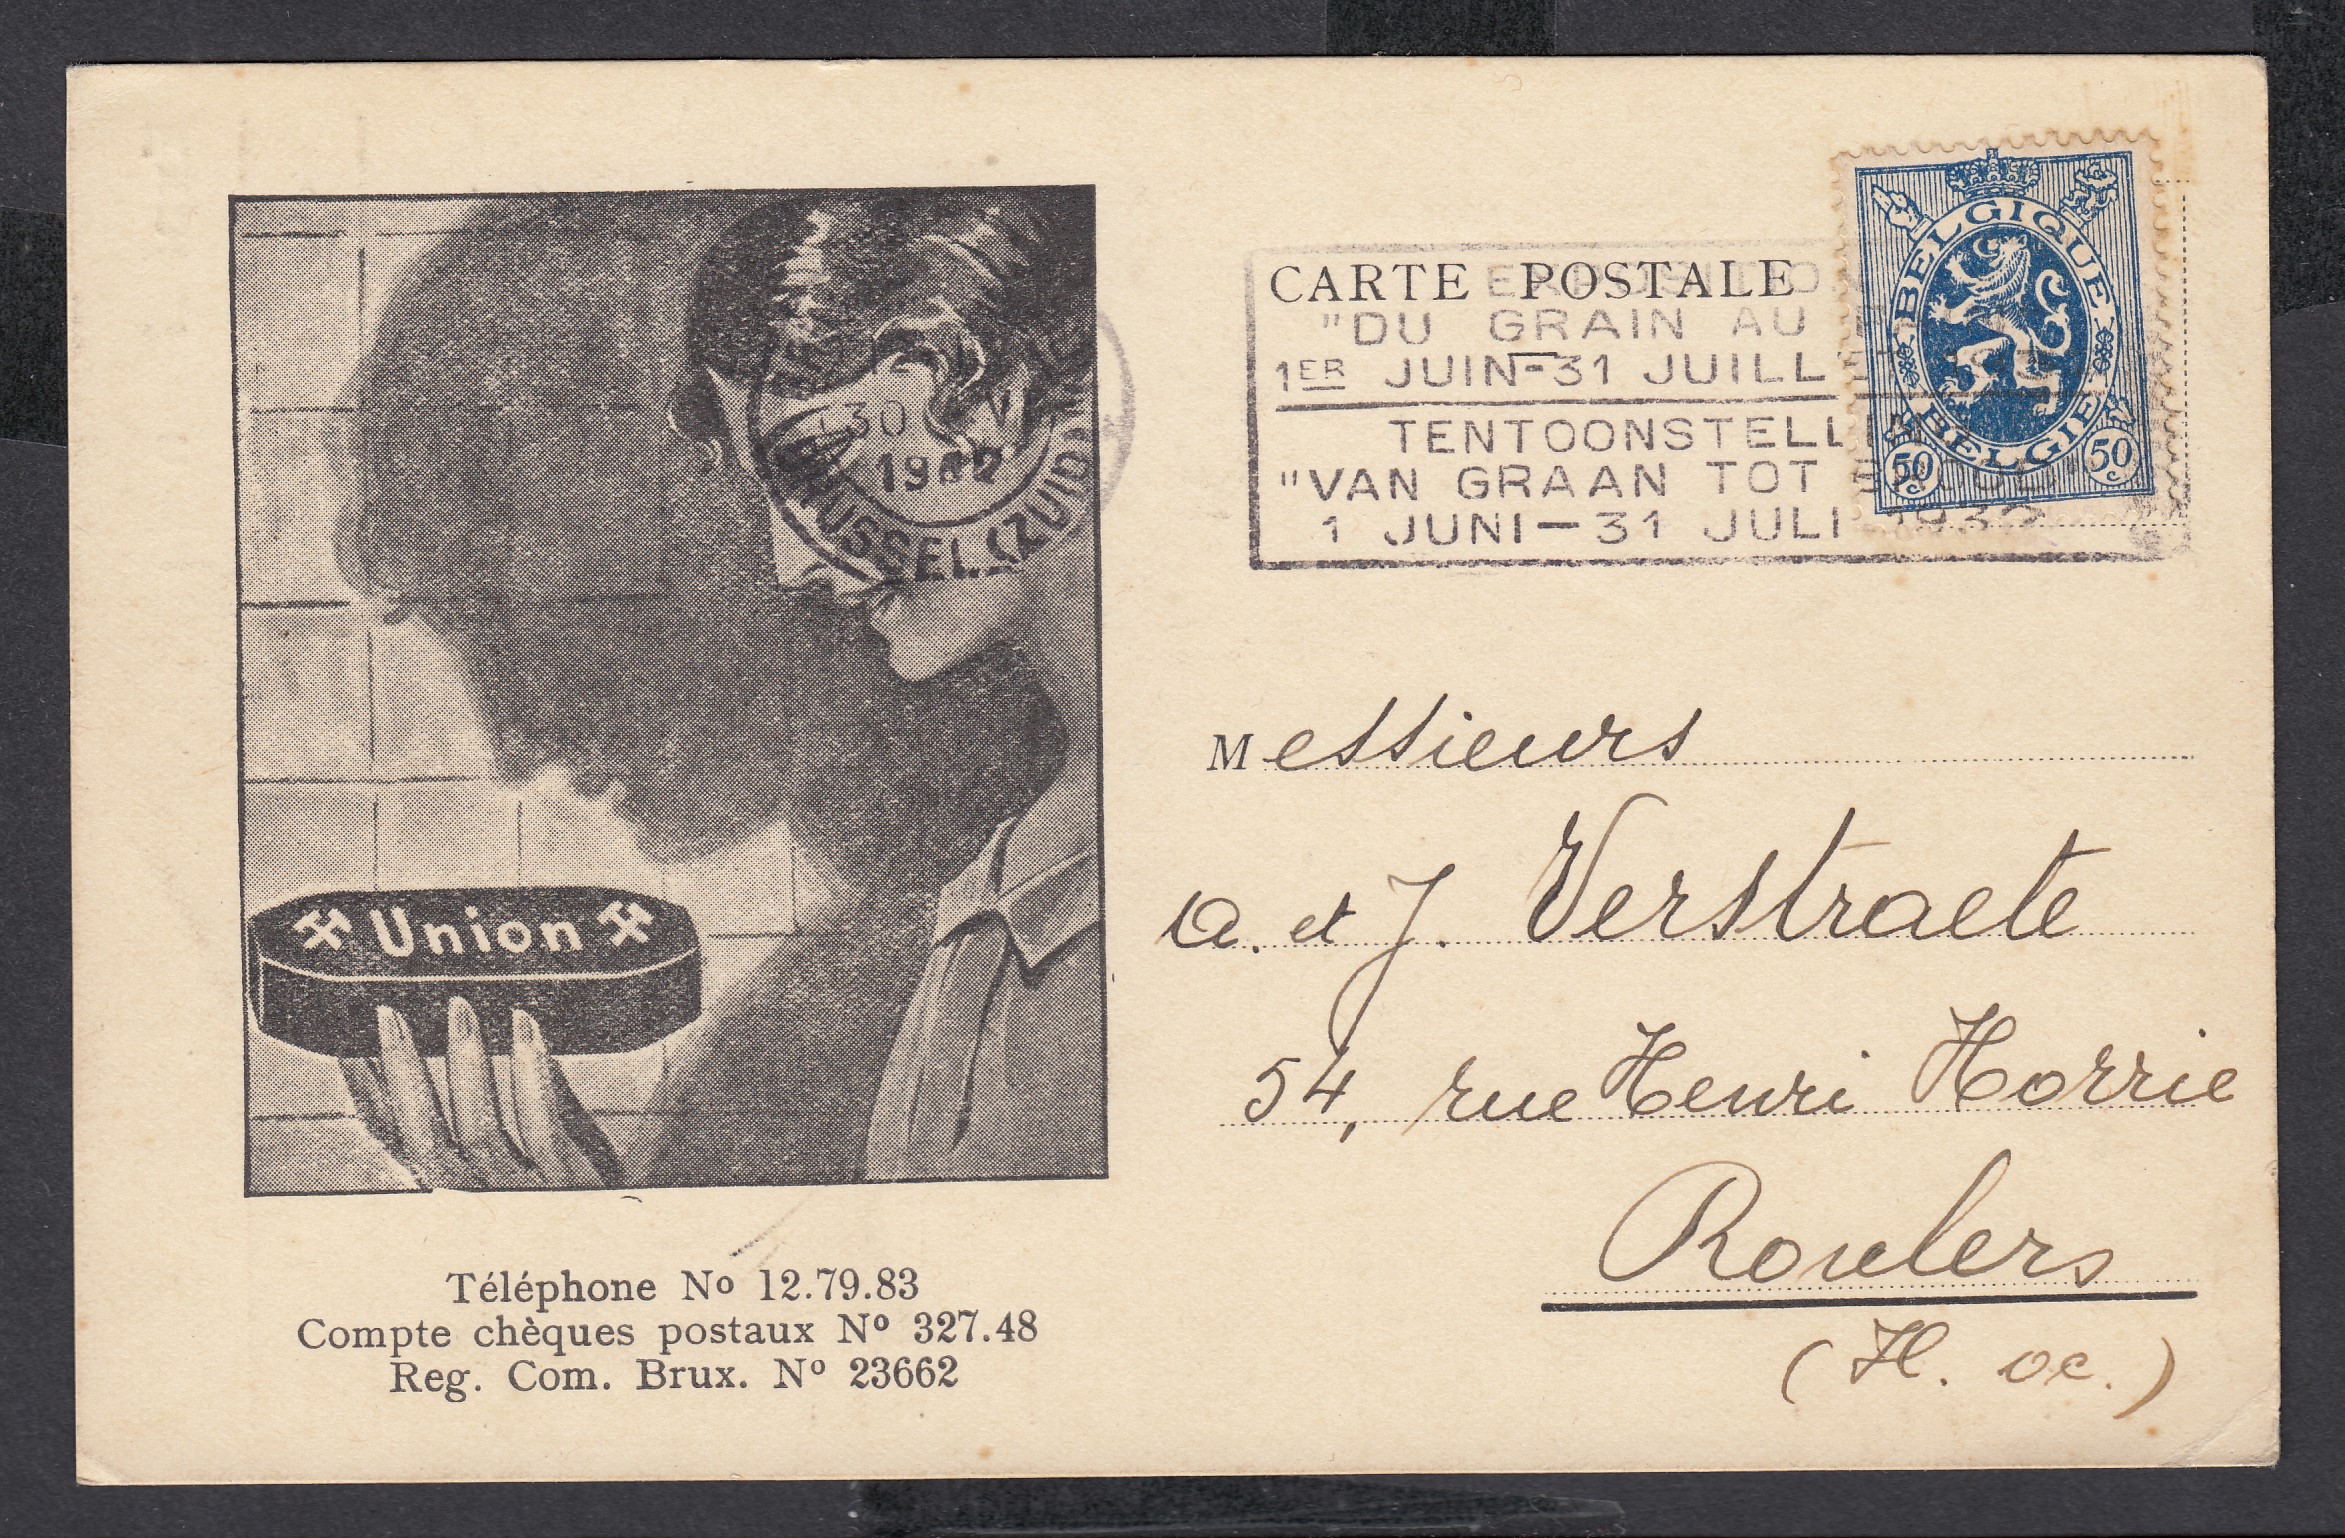 CARTE POSTALE
"DU GRAIN AU
1ER JUIN-31 JUILLET
TENTOONSTELLING
"VAN GRAAN TOT BROOD"
1 JUNI-31 JULI 1932
BELGIQUE
BELGIE
50 c 50 c
30
1932
BRUSSEL (ZUID)
Union
Téléphone No 12.79.83
Compte chèques postaux No 327.48
Reg. Com. Brux. No 23662
Messieurs
A. et J. Verstraete
54, rue Henri Horrie
Roulers
(H. oc.)